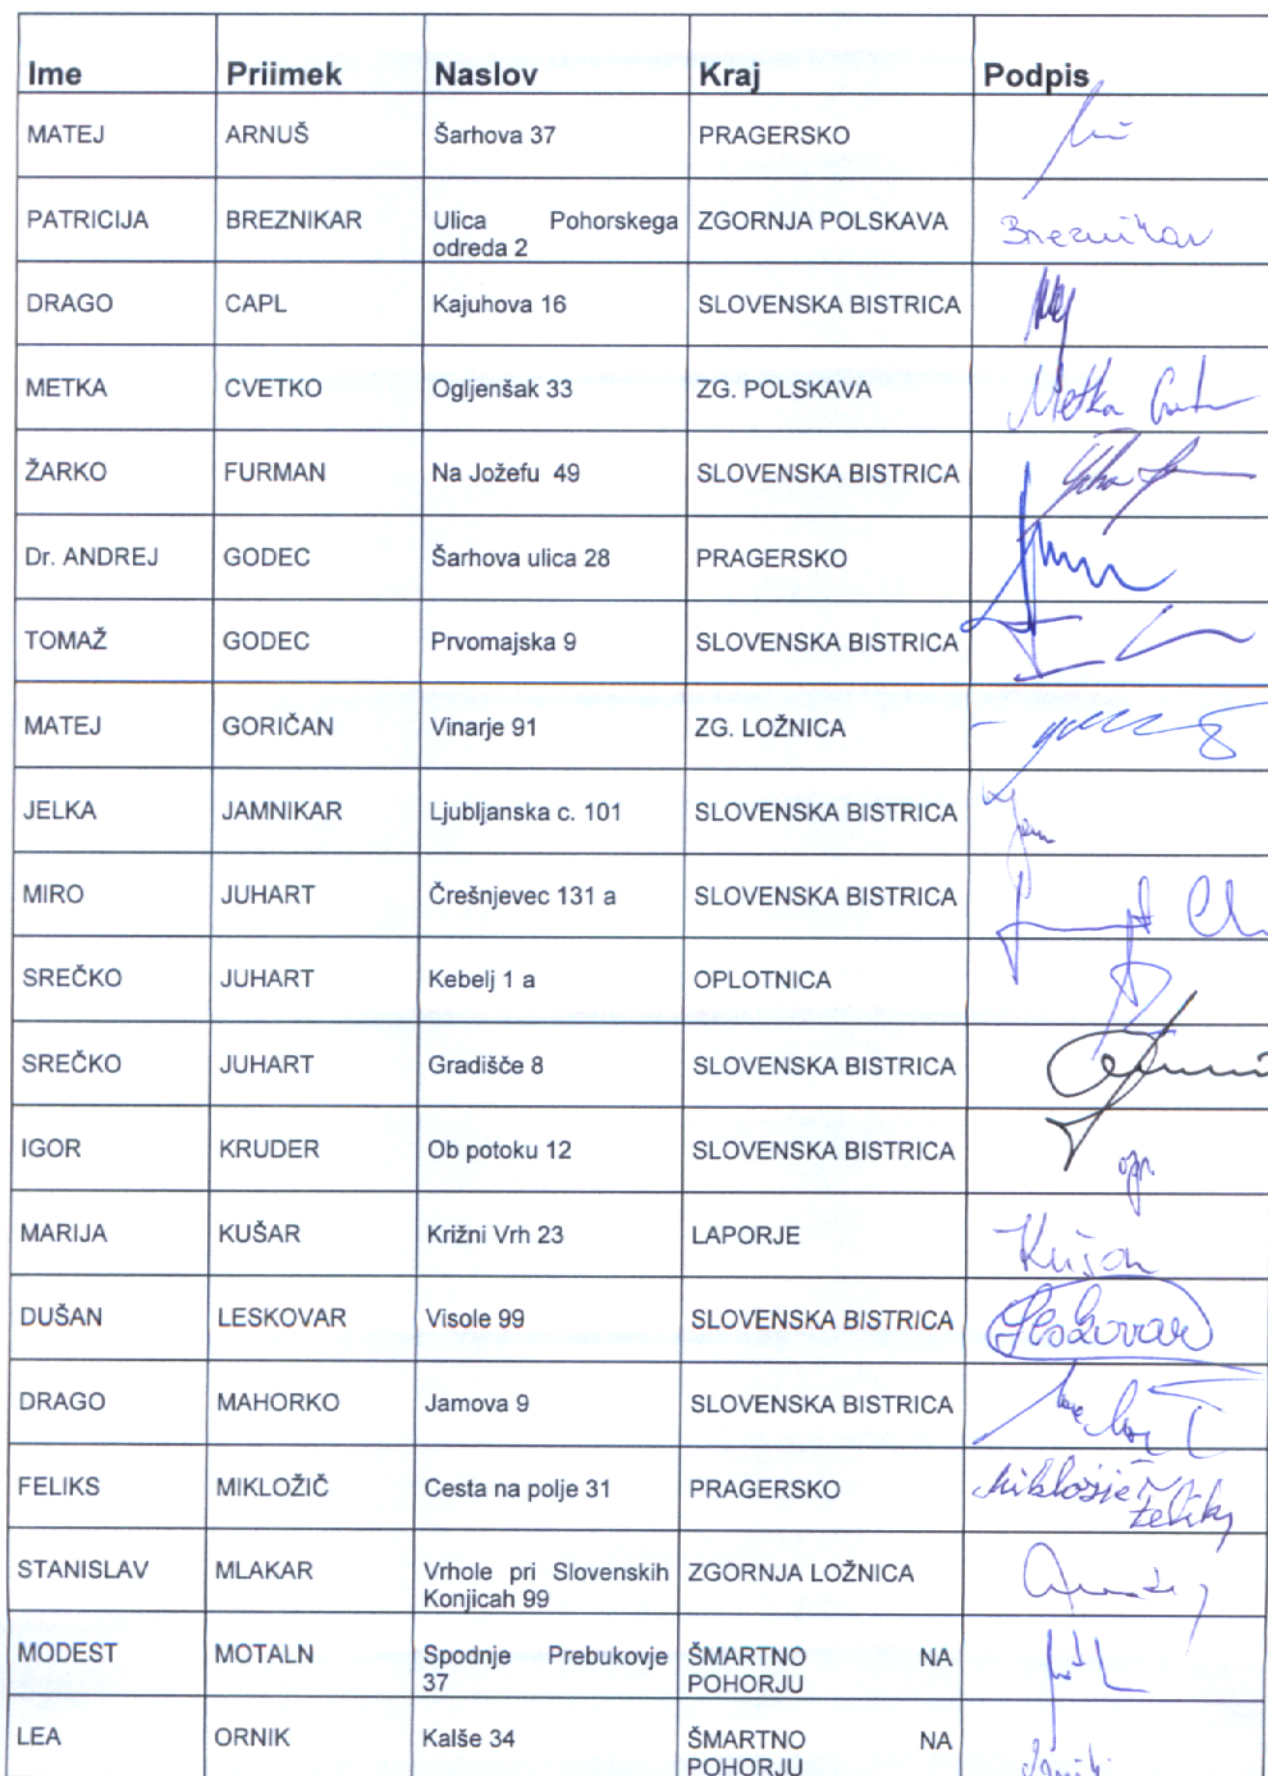 Ime Priimek Naslov Kraj Podpis
MATEJ ARNUŠ Šarhova 37 PRAGERSKO
PATRICIJA BREZNIKAR Ulica Pohorskega ZGORNJA POLSKAVA Breznikar
odreda 2
DRAGO CAPL Kajuhova 16 SLOVENSKA BISTRICA
METKA CVETKO Ogljenšak 33 ZG. POLSKAVA Metka
ŽARKO FURMAN Na Jožefu 49 SLOVENSKA BISTRICA
Dr. ANDREJ GODEC Šarhova ulica 28 PRAGERSKO
TOMAŽ GODEC Prvomajska 9 SLOVENSKA BISTRICA
MATEJ GORIČAN Vinarje 91 ZG. LOŽNICA
JELKA JAMNIKAR Ljubljanska c. 101 SLOVENSKA BISTRICA
MIRO JUHART Črešnjevec 131 a SLOVENSKA BISTRICA
SREČKO JUHART Kebelj 1 a OPLOTNICA
SREČKO JUHART Gradišče 8 SLOVENSKA BISTRICA
IGOR KRUDER Ob potoku 12 SLOVENSKA BISTRICA
MARIJA KUŠAR Križni Vrh 23 LAPORJE Kušar
DUŠAN LESKOVAR Visole 99 SLOVENSKA BISTRICA Leskovar
DRAGO MAHORKO Jamova 9 SLOVENSKA BISTRICA
FELIKS MIKLOŽIČ Cesta na polje 31 PRAGERSKO
STANISLAV MLAKAR Vrhole pri Slovenskih ZGORNJA LOŽNICA
Konjicah 99
MODEST MOTALN Spodnje Prebukovje ŠMARTNO NA
37 POHORJU
LEA ORNIK Kalše 34 ŠMARTNO NA
POHORJU